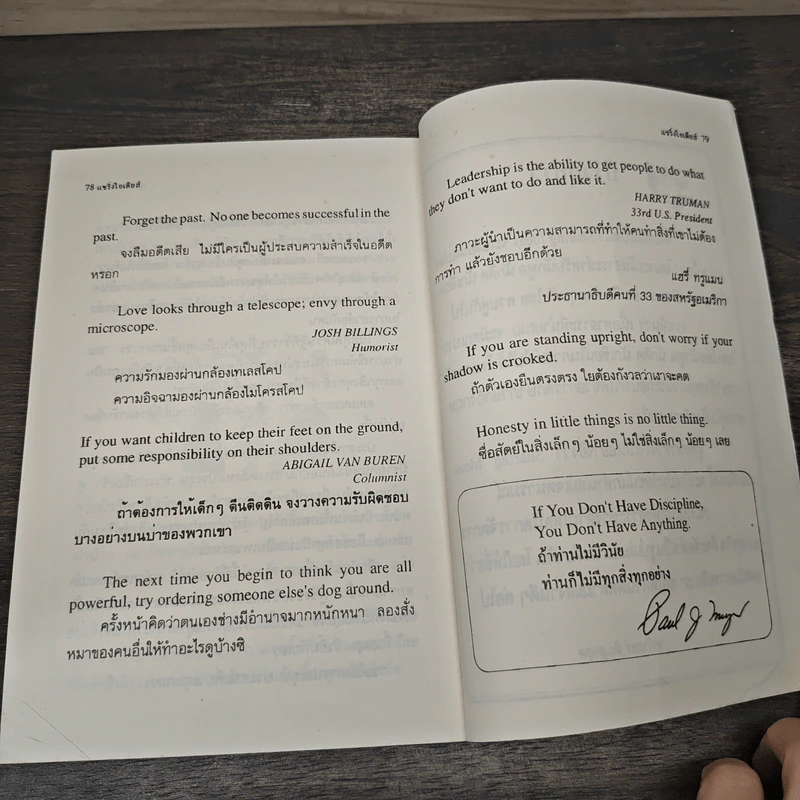 78 แชริ่งไอเดียส์
Forget the past. No one becomes successful in the
past.
จงลืมอดีตเสีย ไม่มีใครเป็นผู้ประสบความสำเร็จในอดีต
หรอก
Love looks through a telescope; envy through a
microscope.
JOSH BILLINGS
Humorist
ความรักมองผ่านกล้องเทเลสโคป
ความอิจฉามองผ่านกล้องไมโครสโคป
If you want children to keep their feet on the ground,
put some responsibility on their shoulders.
ABIGAIL VAN BUREN
Columnist
ถ้าต้องการให้เด็กๆ ตีนติดดิน จงวางความรับผิดชอบ
บางอย่างบนบ่าของพวกเขา
The next time you begin to think you are all
powerful, try ordering someone else's dog around.
ครั้งหน้าคิดว่าตนเองช่างมีอำนาจมากหนักหนา ลองสั่ง
หมาของคนอื่นให้ทำอะไรดูบ้างซิ
แชริ่งไอเดียส์ 79
Leadership is the ability to get people to do what
they don't want to do and like it.
HARRY TRUMAN
33rd U.S. President
ภาวะผู้นำเป็นความสามารถที่ทำให้คนทำสิ่งที่เขาไม่ต้อง
การทำ แล้วยังชอบอีกด้วย
แฮรี่ ทรูแมน
ประธานาธิบดีคนที่ 33 ของสหรัฐอเมริกา
If you are standing upright, don't worry if your
shadow is crooked.
ถ้าตัวเองยืนตรงตรง ใยต้องกังวลว่าเงาจะคด
Honesty in little things is no little thing.
ซื่อสัตย์ในสิ่งเล็กๆ น้อยๆ ไม่ใช่สิ่งเล็กๆ น้อยๆ เลย
If You Don't Have Discipline,
You Don't Have Anything.
ถ้าท่านไม่มีวินัย
ท่านก็ไม่มีทุกสิ่งทุกอย่าง
Paul J Meyer